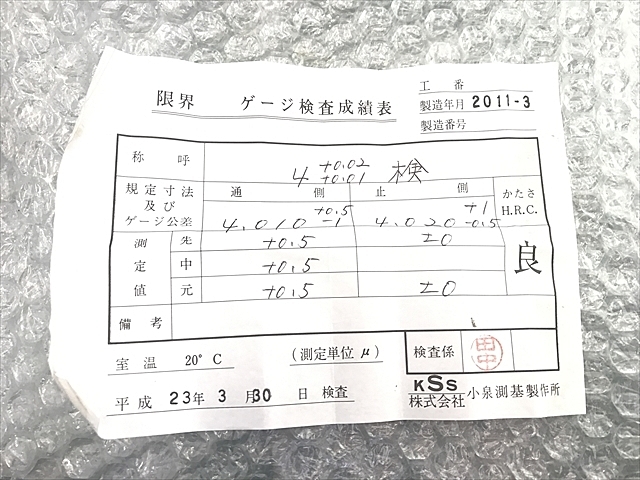 限界 ゲージ検査成績表
工番
製造年月 2011-3
製造番号
称呼 4 +0.02 +0.01 検
規定寸法及びゲージ公差 通側 止側 かたさ H.R.C.
4.010 +0.5 -1 4.020 +1 -0.5
測定値 先 +0.5 ±0 良
中 +0.5
元 +0.5 ±0
備考
室温 20°C (測定単位 μ) 検査係 田中
平成 23年 3月 30日 検査
KSS
株式会社 小泉測基製作所